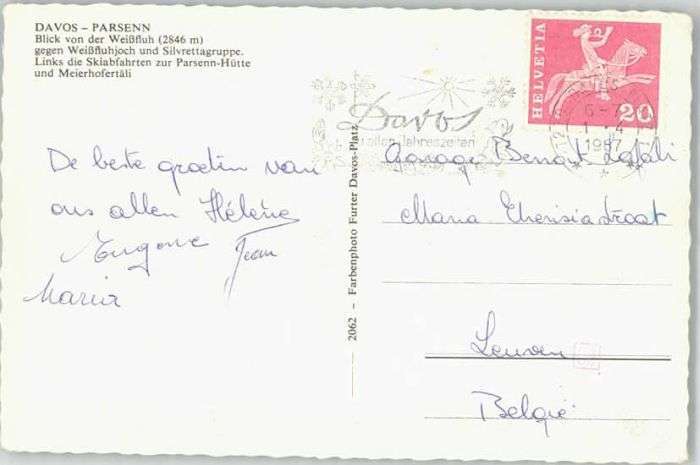 DAVOS – PARSENN
Blick von der Weißfluh (2846 m)
gegen Weißfluhjoch und Silvrettagruppe.
Links die Skiabfahrten zur Parsenn-Hütte
und Meierhofertäli
HELVETIA
20
Davos
allen Jahreszeiten
1967
De beste groeten van
ons allen Hélène
Eugone Jean
Maria
2062 – Farbenphoto Furter Davos-Platz
Garage Benoit
Maria Theresiastraat
Leuven
België